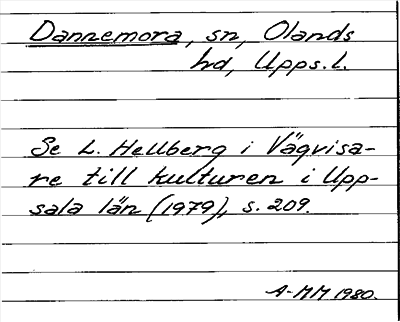 Dannemora, sn, Olands
hd, Upps. l.
Se L. Hellberg i Vägvisa-
re till kulturen i Upp-
sala län (1979), s. 209.
A-MM 1980.